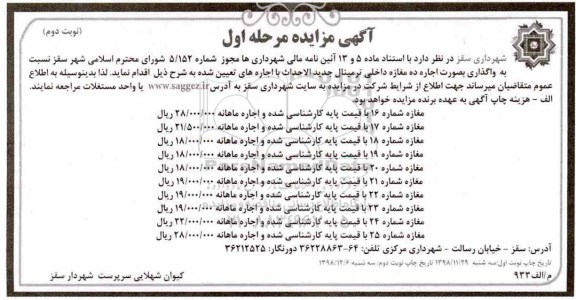 آگهی مزایده مرحله اول
(نوبت دوم)
شهرداری سقز در نظر دارد با استناد ماده ۵ و ۱۳ آئین نامه مالی شهرداری ها مجوز شماره ۵/۱۵۲ شورای محترم اسلامی شهر سقز نسبت
به واگذاری بصورت اجاره ده مغازه داخلی ترمینال جدیدالاحداث با اجاره های تعیین شده به شرح ذیل اقدام نماید. لذا بدینوسیله به اطلاع
عموم متقاضیان میرساند جهت اطلاع از شرایط شرکت در مزایده به سایت شهرداری سقز به آدرس www.saggez.ir یا واحد مستغلات مراجعه نمایند.
الف - هزینه چاپ آگهی به عهده برنده مزایده خواهد بود.
مغازه شماره ۱۶ با قیمت پایه کارشناسی شده و اجاره ماهانه ۲۸/۰۰۰/۰۰۰ ریال
مغازه شماره ۱۷ با قیمت پایه کارشناسی شده و اجاره ماهانه ۲۱/۵۰۰/۰۰۰ ریال
مغازه شماره ۱۸ با قیمت پایه کارشناسی شده و اجاره ماهانه ۱۸/۰۰۰/۰۰۰ ریال
مغازه شماره ۱۹ با قیمت پایه کارشناسی شده و اجاره ماهانه ۱۸/۰۰۰/۰۰۰ ریال
مغازه شماره ۲۰ با قیمت پایه کارشناسی شده و اجاره ماهانه ۱۸/۰۰۰/۰۰۰ ریال
مغازه شماره ۲۱ با قیمت پایه کارشناسی شده و اجاره ماهانه ۱۹/۰۰۰/۰۰۰ ریال
مغازه شماره ۲۲ با قیمت پایه کارشناسی شده و اجاره ماهانه ۱۹/۰۰۰/۰۰۰ ریال
مغازه شماره ۲۳ با قیمت پایه کارشناسی شده و اجاره ماهانه ۱۹/۰۰۰/۰۰۰ ریال
مغازه شماره ۲۴ با قیمت پایه کارشناسی شده و اجاره ماهانه ۲۲/۰۰۰/۰۰۰ ریال
مغازه شماره ۲۵ با قیمت پایه کارشناسی شده و اجاره ماهانه ۲۸/۰۰۰/۰۰۰ ریال
آدرس: سقز - خیابان رسالت - شهرداری مرکزی تلفن: ۶۴-۳۶۲۲۸۸۶۳ دورنگار: ۳۶۲۱۲۵۲۵
تاریخ چاپ نوبت اول: سه شنبه ۱۳۹۸/۱۱/۲۹ تاریخ چاپ نوبت دوم: سه شنبه ۱۳۹۸/۱۲/۶
م/الف ۹۳۳
کیوان شهلایی سرپرست شهردار سقز